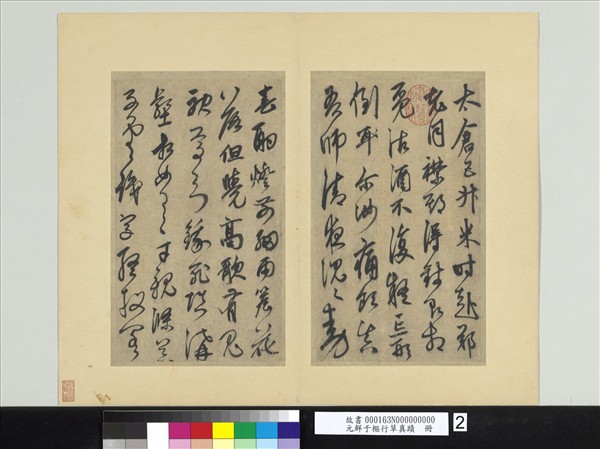 太倉五升米時赴鄭
老同襟期得錢即相
覓沽酒不復疑忘形
倒耳尔汝痛飲真
吾師清夜沉々動
春酌燈前細雨簷花
落但覺高歌有鬼
神焉知餓死填溝
壑相如逸才親滌器
子雲識字終投閣
故書 000163N000000000
元鮮于樞行草真蹟 冊
2